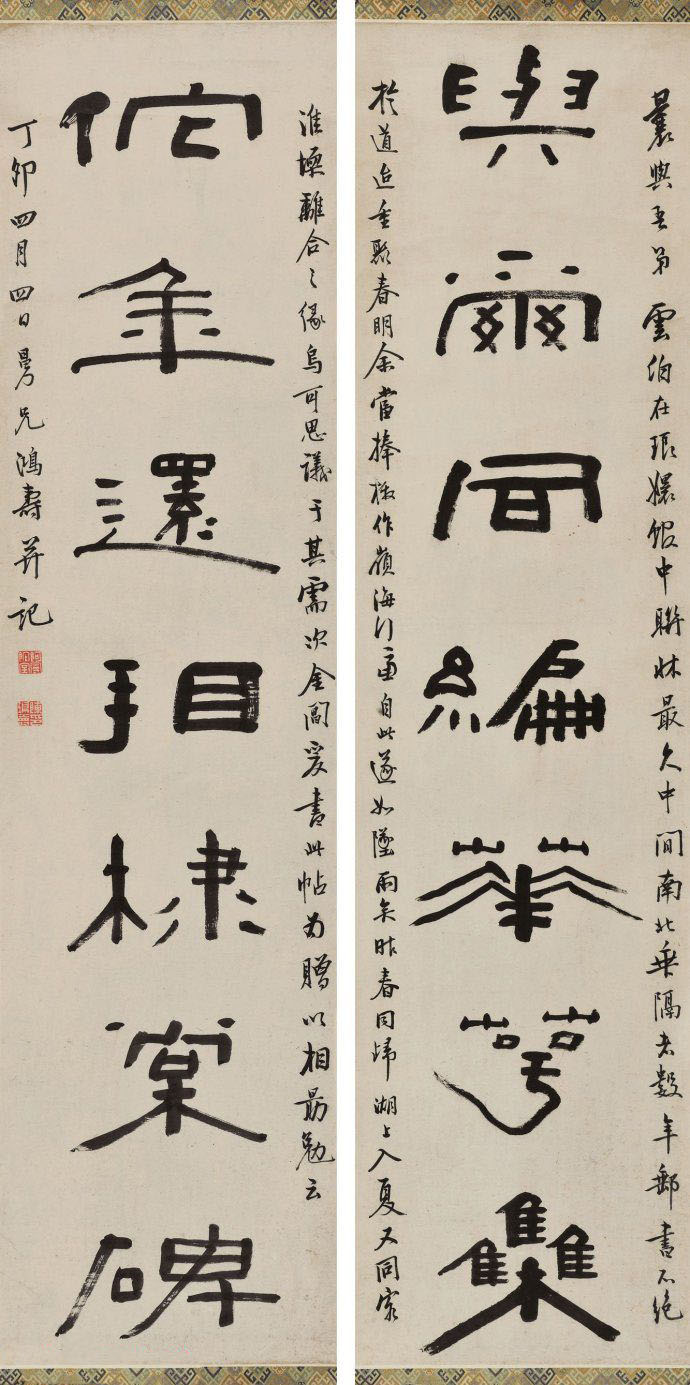 曩與吾弟雲伯在琅嬛館中聯牀最久中間南北乖隔者數年郵書不絕
與爾同編華萼集
於道迨重聚春明余當捧檄作嶺海行意自此遂如墜雨矣昨春同歸湖上入夏又同客
淮壖離合之緣烏可思議于其需次金閶爰書此帖為贈以相勗勉云
佗年還相棣棠碑
丁卯四月四日曼兄鴻壽并記